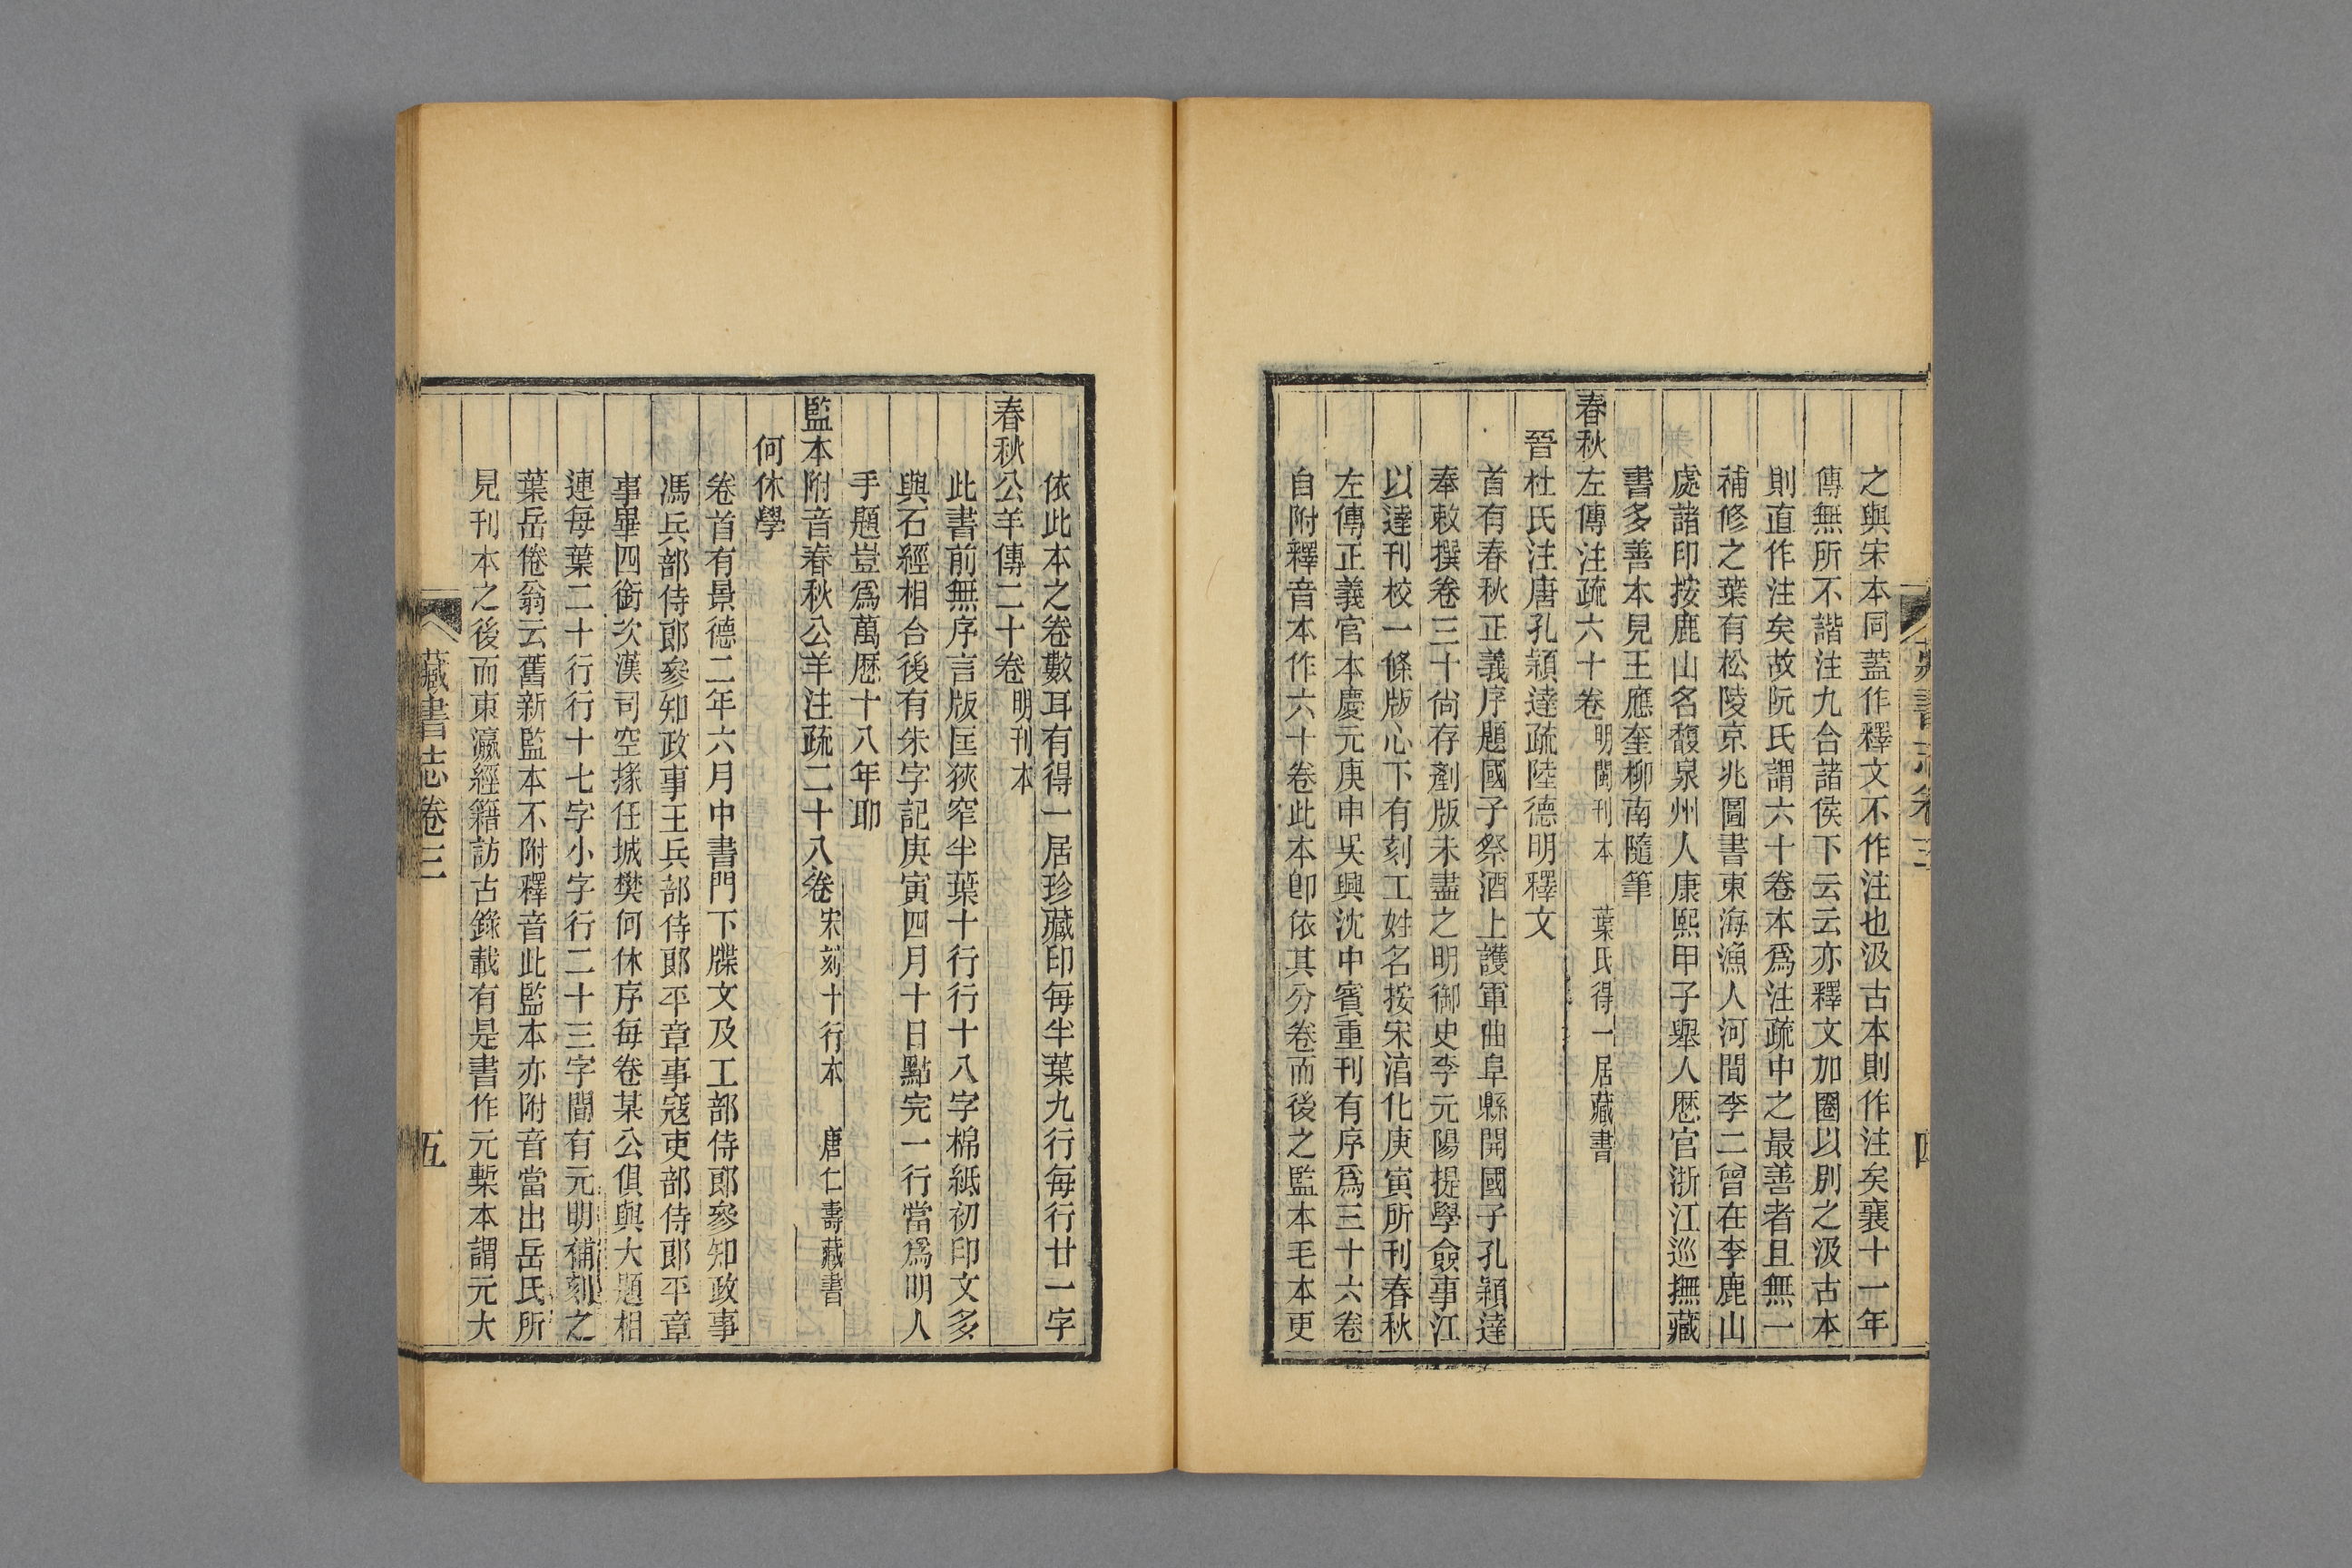 之與宋本同蓋作釋文不作注也汲古本則作注矣襄十一年
傳無所不諧注九合諸侯下云云亦釋文加圈以別之汲古本
則直作注矣故阮氏謂六十卷本爲注疏中之最善者且無一
補修之葉有松陵京兆圖書東海漁人河間李二曾在李鹿山
處諸印按鹿山名馥泉州人康熙甲子舉人歷官浙江巡撫藏
書多善本見王應奎柳南隨筆
春秋左傳注疏六十卷 明閩刊本 葉氏得一居藏書
晉杜氏注唐孔穎達疏陸德明釋文
首有春秋正義序題國子祭酒上護軍曲阜縣開國子孔穎達
奉敕撰卷三十尚存剷版未盡之明御史李元陽提學僉事江
以達刊校一條版心下有刻工姓名按宋淳化庚寅所刊春秋
左傳正義官本慶元庚申吳興沈中賓重刊有序爲三十六卷
自附釋音本作六十卷此本卽依其分卷而後之監本毛本更
依此本之卷數耳有得一居珍藏印每半葉九行每行廿一字
春秋公羊傳二十卷 明刊本
此書前無序言版匡狹窄半葉十行行十八字棉紙初印文多
與石經相合後有朱字記庚寅四月十日點完一行當爲明人
手題豈爲萬歷十八年耶
監本附音春秋公羊注疏二十八卷 宋刻十行本 唐仁壽藏書
何休學
卷首有景德二年六月中書門下牒文及工部侍郎參知政事
馮兵部侍郎參知政事王兵部侍郎平章事寇吏部侍郎平章
事畢四銜次漢司空掾任城樊何休序每卷某公俱與大題相
連每葉二十行行十七字小字行二十三字間有元明補刻之
葉岳倦翁云舊新監本不附釋音此監本亦附音當出岳氏所
見刊本之後而東瀛經籍訪古錄載有是書作元槧本謂元大
藏書志卷三
五